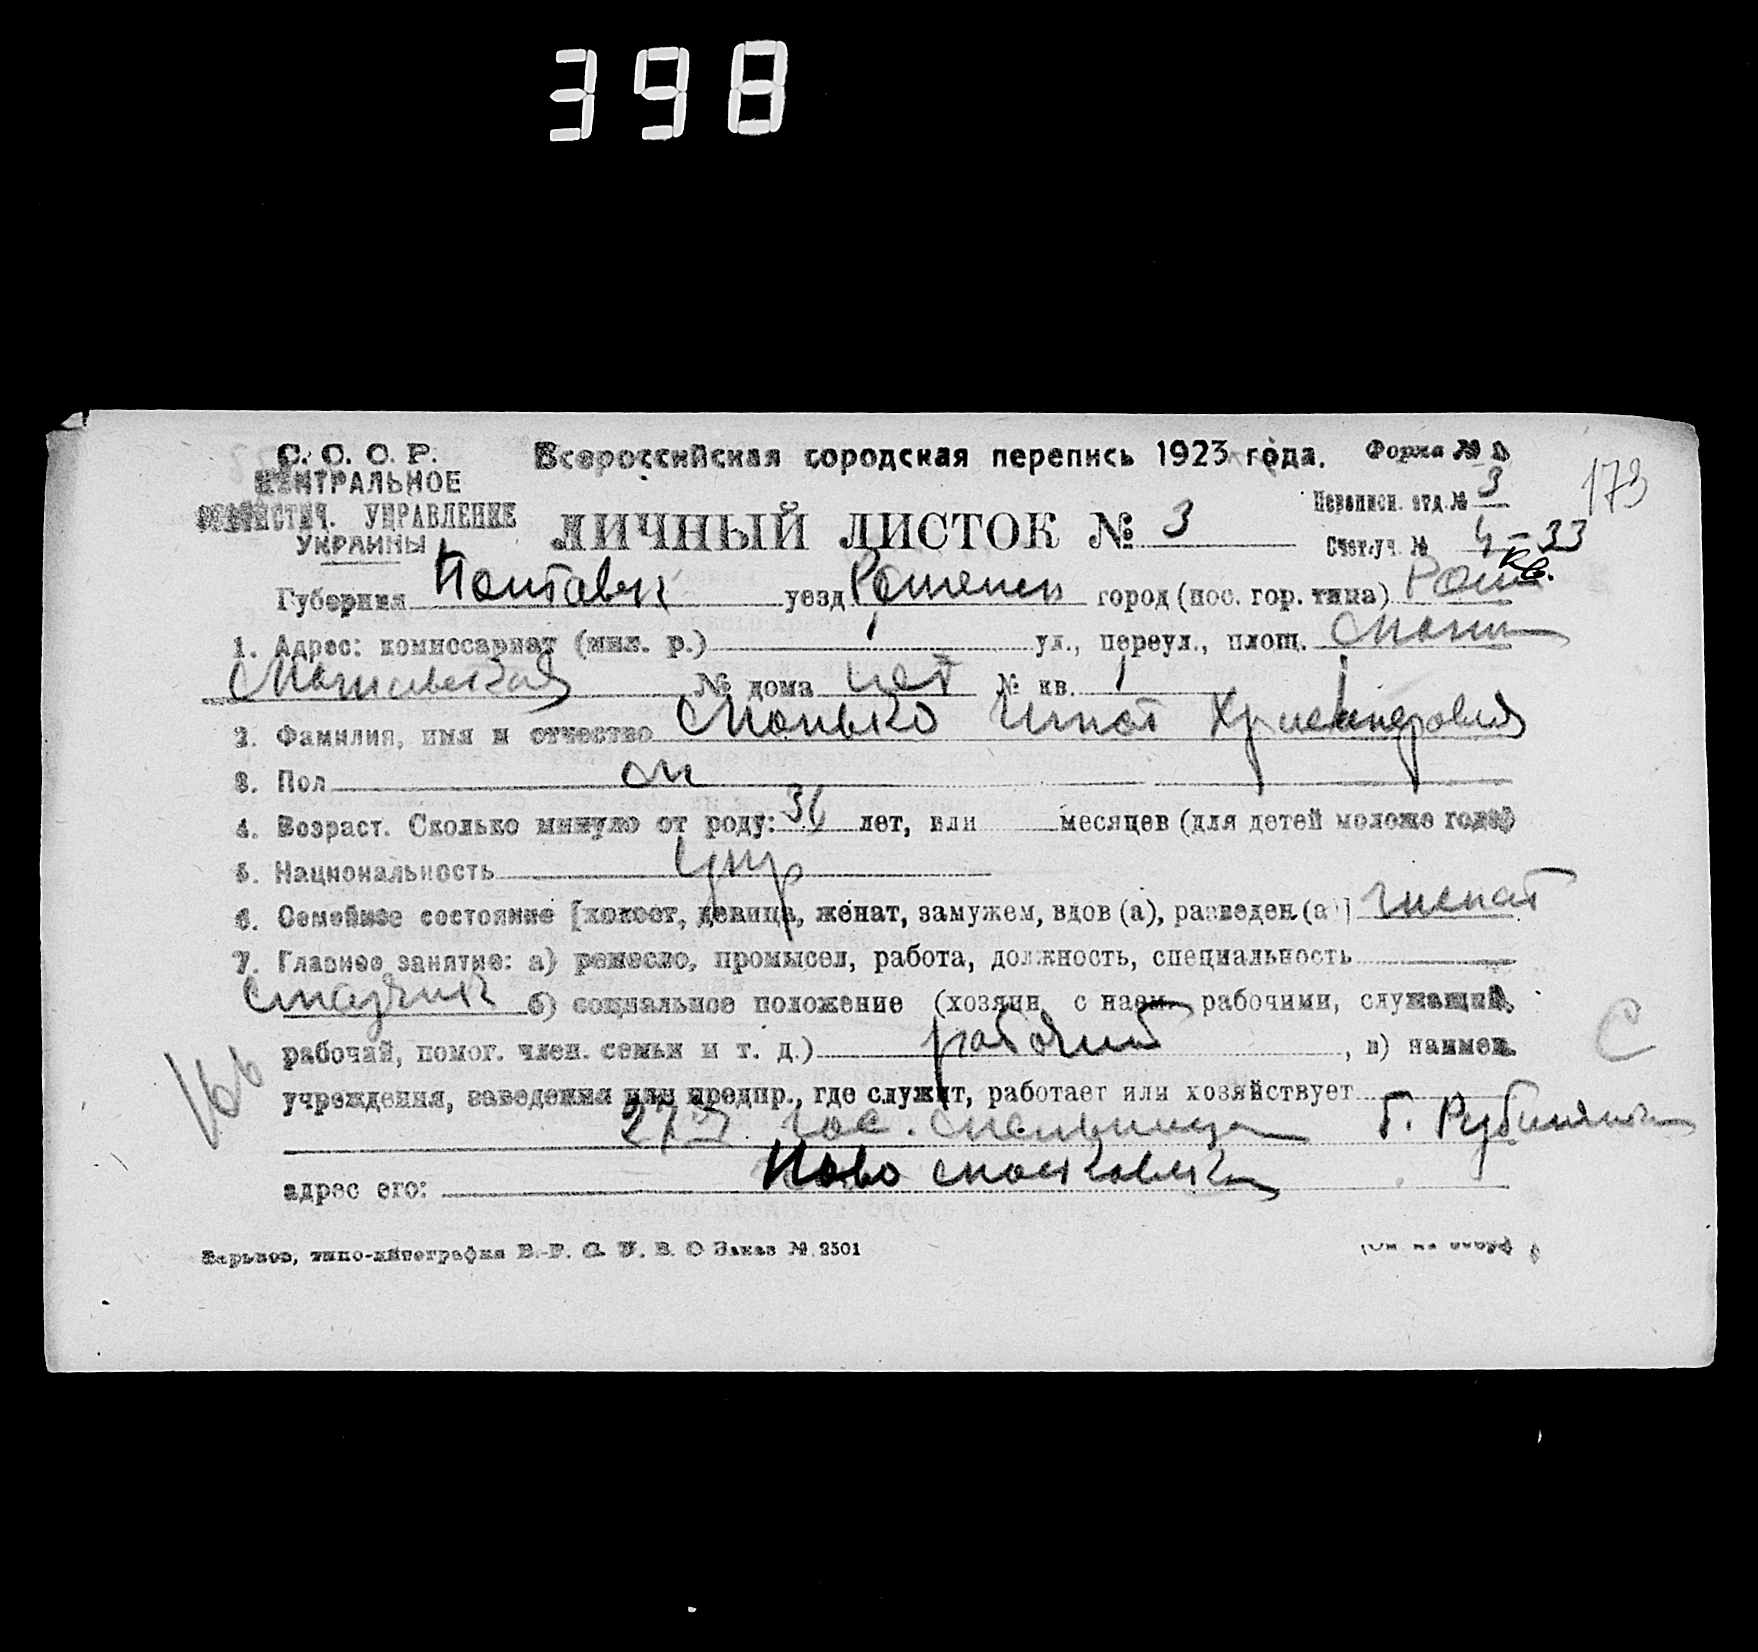 398
С. С. С. Р.
ЦЕНТРАЛЬНОЕ
СТАТИСТИЧ. УПРАВЛЕНИЕ
УКРАИНЫ
Всероссийская городская перепись 1923 года.
Форма №
173
ЛИЧНЫЙ ЛИСТОК № 3
Переписн. отд. № 3
Счет. уч. № 4-33
кв.
Губерния Полтавск уезд Роменск город (пос. гор. типа) Ром
1. Адрес: комиссариат (мил. р.) 1 ул., переул., площ.
№ дома нет № кв. 1
2. Фамилия, имя и отчество Монько Игнат
3. Пол м
4. Возраст. Сколько минуло от роду: 36 лет, или месяцев (для детей моложе года)
5. Национальность Укр
6. Семейное состояние [холост, девица, женат, замужем, вдов (а), разведен (а)] женат
7. Главное занятие: а) ремесло, промысел, работа, должность, специальность
б) социальное положение (хозяин с наем. рабочими, служащий,
рабочий, помог. член. семьи и т. д.) рабочий, в) наимен.
С
166
учреждения, заведения или предпр., где служит, работает или хозяйствует
27 Гос. мельница б.
адрес его: Ново московская
Харьков, типо-литография В.-Р. С. У. В. О Заказ № 2501